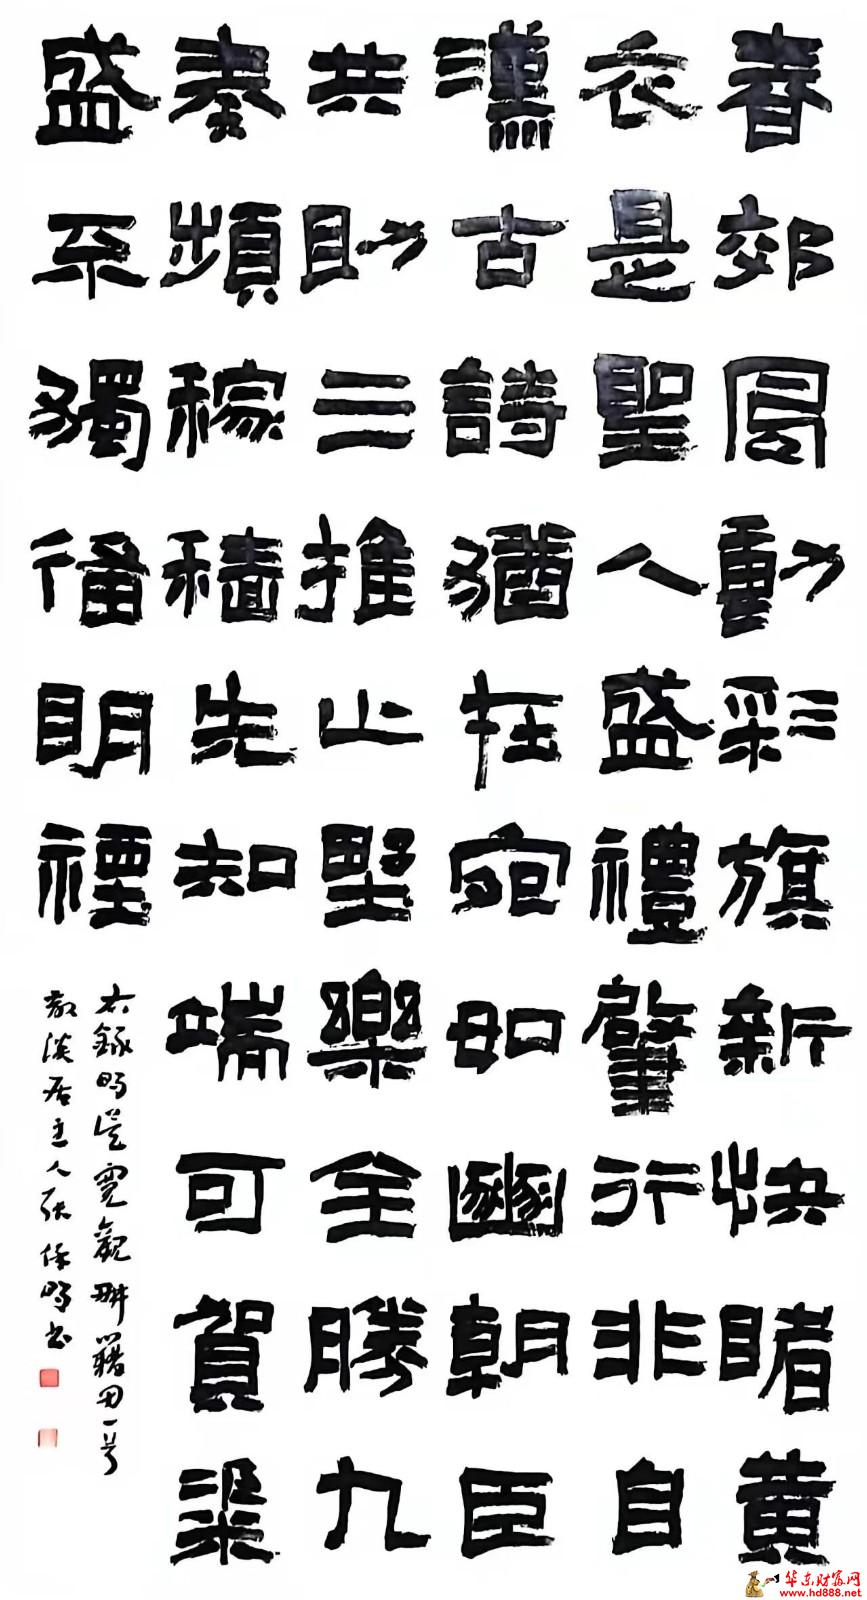 春郊風動彩旗新快睹黄
衣是聖人盛禮肇行非自
漢古詩猶在宛如豳朝臣
共助三推止野樂全勝九
奏頻稼穡先知端可賀粢
盛不獨備明禋
右錄明吳寬觀耕籍田一首
散淡居主人張保明書
华东财富网
www.hd888.net